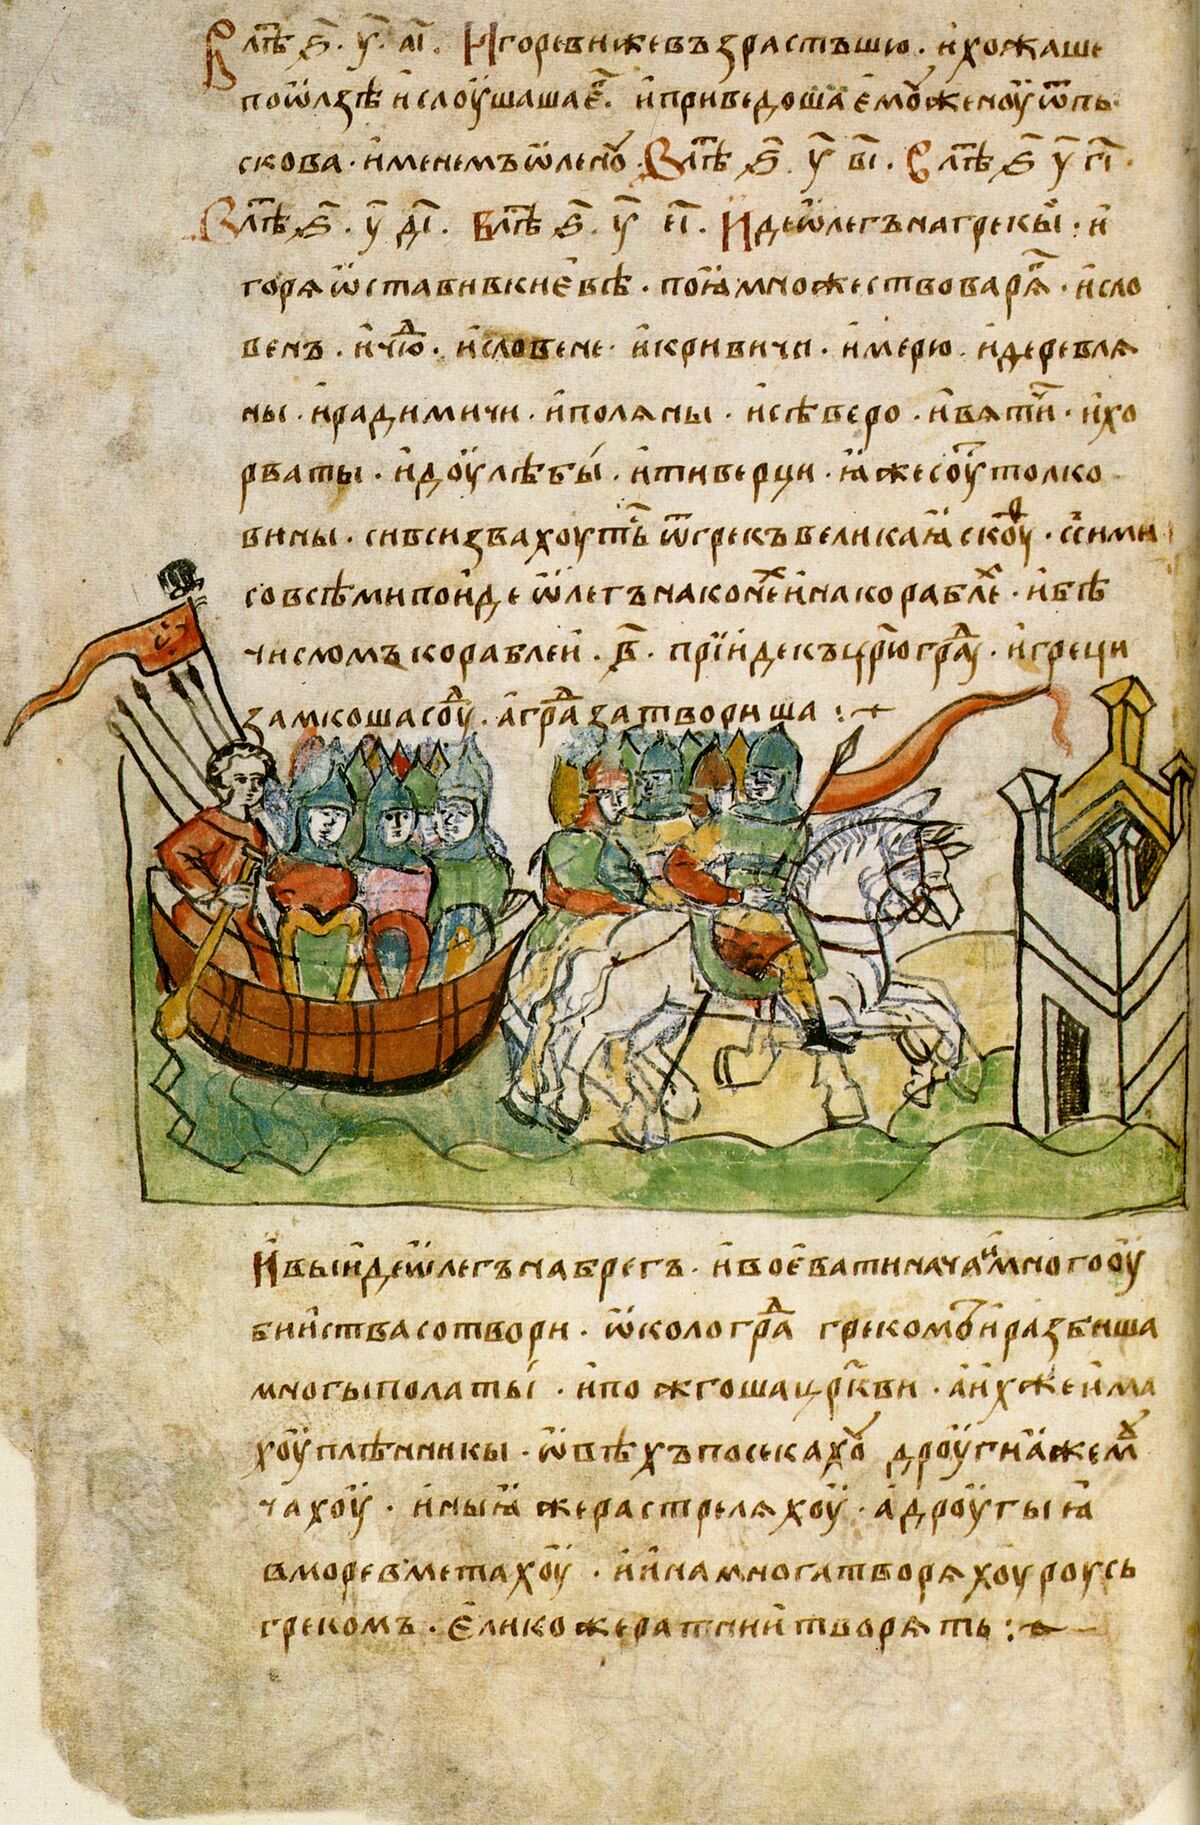 В лѣт҃ ҂ѕ҃ . у҃ . аı҃ . Игореви же възрастъшю . и хожаше
по ѡлзѣ и слоушаше е҃г . и приведоша ему женоу ѿ пь
скова . именемъ ѡленоу . В лѣт҃ ҂ѕ҃ у҃ вı҃ . В лѣт҃ ҂ѕ҃ у҃ гı҃ .
В лѣт҃ ҂ѕ҃ . у҃ дı҃ . В лѣт҃ ҂ѕ҃ . у҃ еı҃ . Иде ѡлегъ на грекы . и
горѧ ѡстави в киевѣ . поıа множество варѧг . и сло
венъ . и чюд . и словене . и кривичи . и мерю . и деревлѧ
ны . и радимичи . и полѧны . и сѣверо . и вѧтичи . и хо
рваты . и доулѣбы . и тиверци . ıаже соуть толко
вины . си вси звахоуть с ѿ грекъ великаıа скоуф . с сими
со всѣми поиде ѡлегъ на конех и на кораблех . и бѣ
числомъ кораблеи . ҂в҃ . прıиде къ цр҃юград . и греци
замкоша соуд . а град затвориша :
И выиде ѡлегъ на брегъ . и воевати нача и много оу
биıства сотвори . ѡколо град грекомъ и разбиша
многы полаты . и пожгоша црк҃ви . а их же има
хоу плѣнникы . ѡвѣхъ посекахоу дроугиıа же моу
чахоу . иныıа же растрелѧхоу . а дроугыıа
в море вметахоу . и ина многа творѧхоу роусь
грекомъ . елико же ратнии творѧть :